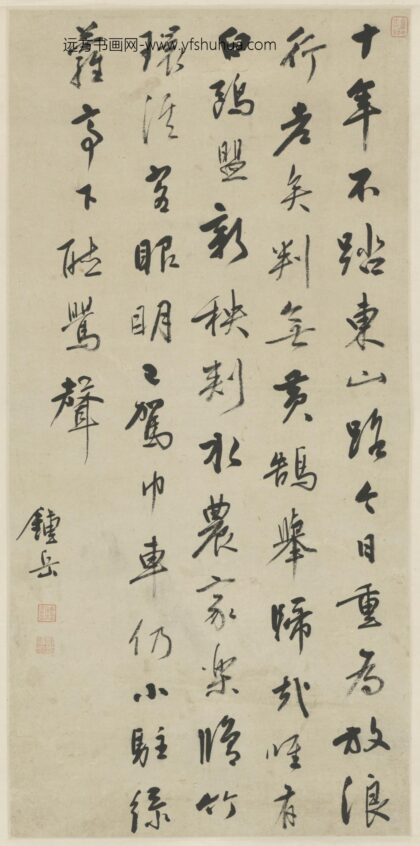 远芳书画网-www.yfshuhua.com
十年不踏東山路今日重為放浪
行老矣判無黃鵠舉歸哉唯有
白鷗盟新秧刺水農家樂脩竹
環溪客眼明已駕巾車仍小駐綠
蘿亭下聽鶯聲
鍾岳